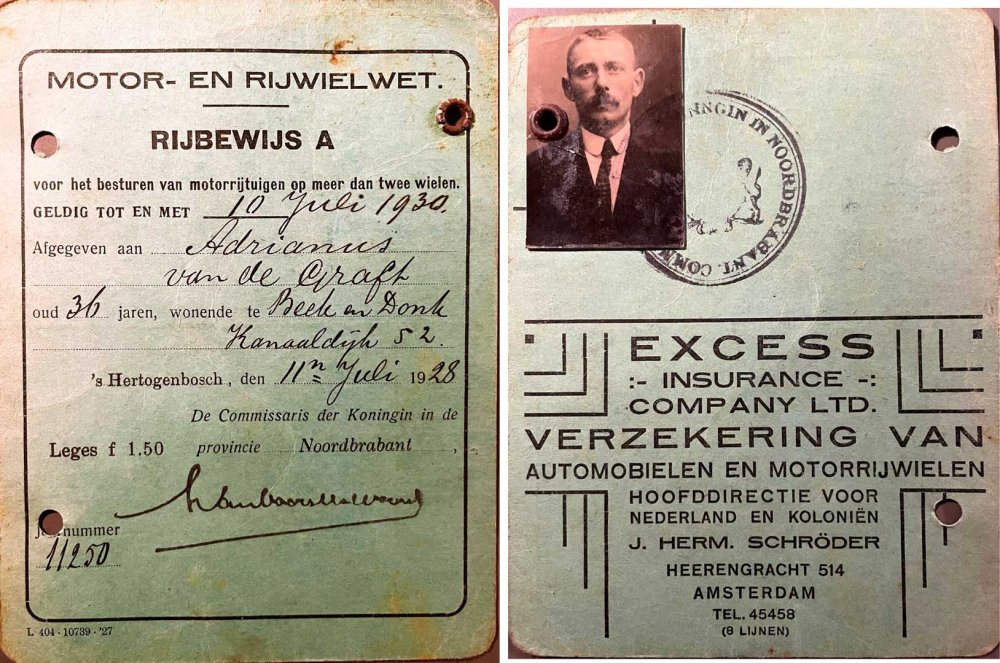 MOTOR- EN RIJWIELWET.
RIJBEWIJS A
voor het besturen van motorrijtuigen op meer dan twee wielen.
GELDIG TOT EN MET 10 Juli 1930.
Afgegeven aan Adrianus
van de Graft
oud 36 jaren, wonende te Beek en Donk
Kanaaldijk 52.
's Hertogenbosch, den 11n Juli 1928
De Commissaris der Koningin in de
Leges f 1.50 provincie Noordbrabant,
nummer
11250
L 404 - 10739 - '27
NINGIN IN NOORDBRABANT. COMM
EXCESS
:- INSURANCE -:
COMPANY LTD.
VERZEKERING VAN
AUTOMOBIELEN EN MOTORRIJWIELEN
HOOFDDIRECTIE VOOR
NEDERLAND EN KOLONIËN
J. HERM. SCHRÖDER
HEERENGRACHT 514
AMSTERDAM
TEL. 45458
(8 LIJNEN)